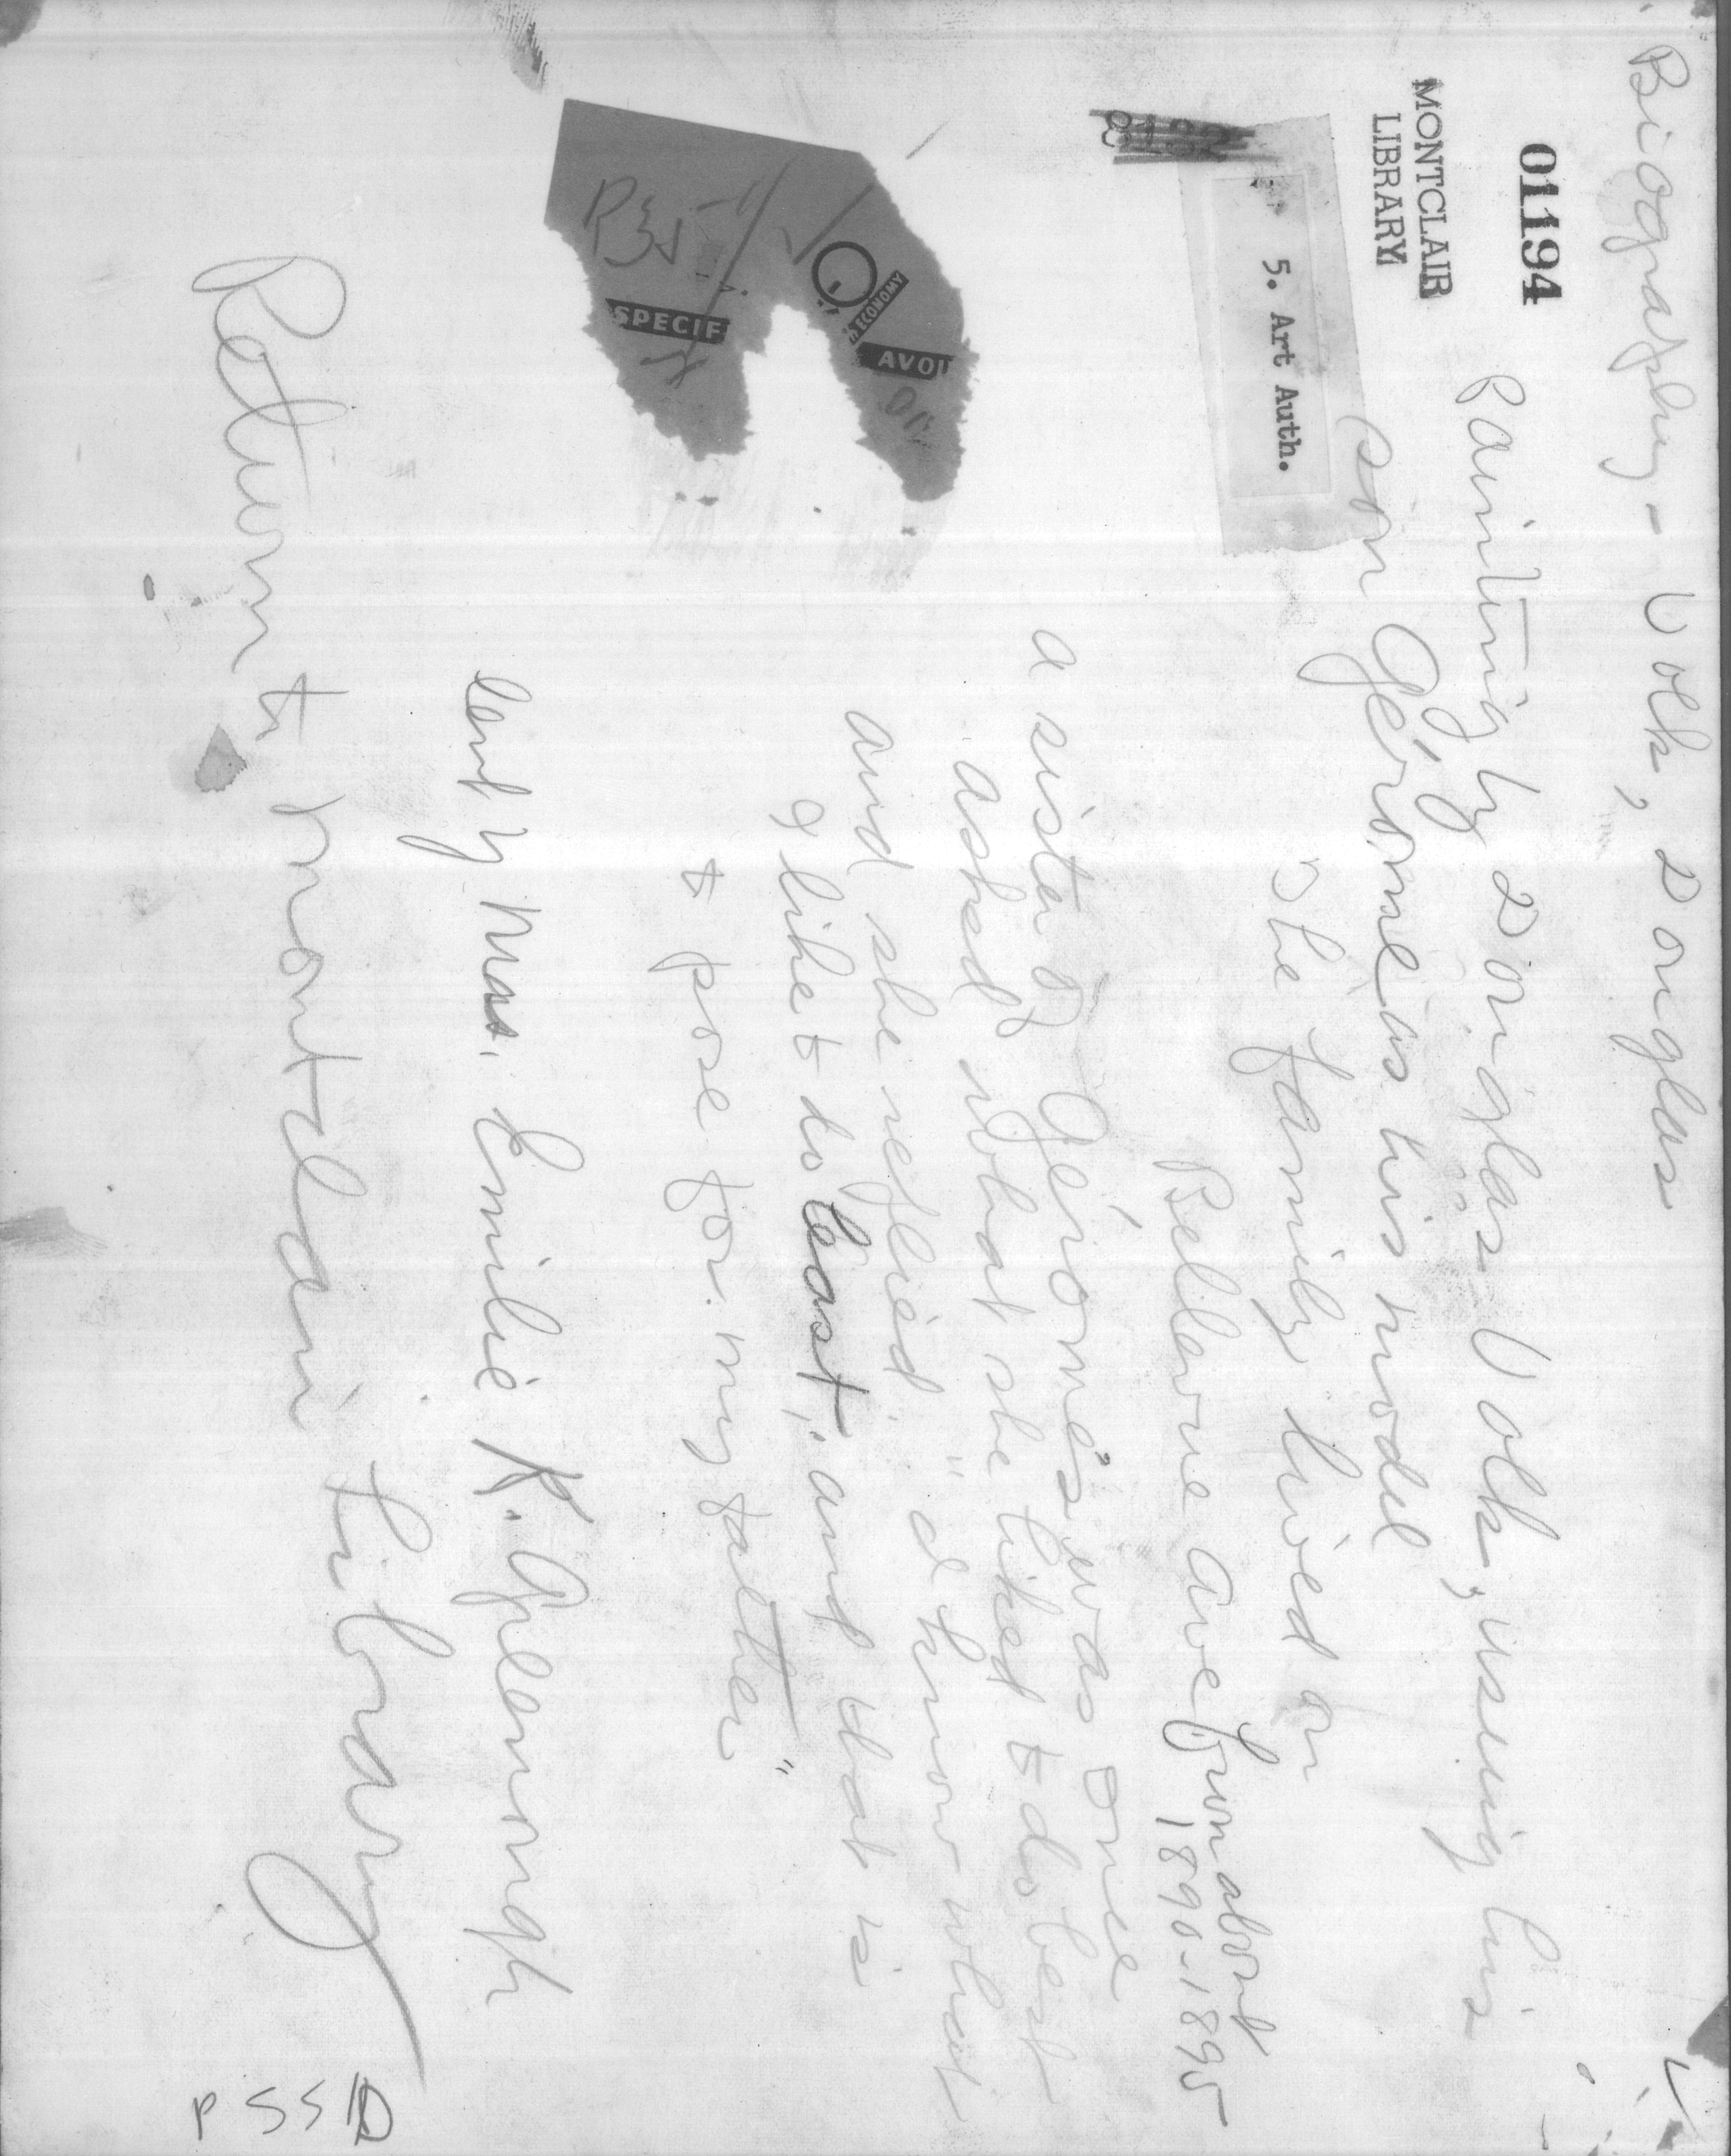 Biography - Volk, Douglas
01194
MONTCLAIR
LIBRARY
Painting by Douglas Volk, using his
son Gérome as his model
5. Art Auth.
The family lived on
Bellevue Ave from about
1890-1895
a sister of Gérome's was once
asked what she liked to do best
and she replied "I know what
I like to do least, and that is
to pose for my father"
ECONOMY
AVOI
SPECIF
lent by Mrs. Emilie K. Greenough
Return to Montclair Library